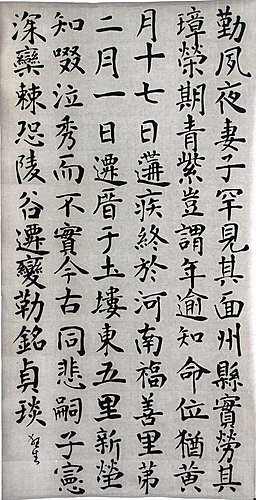 勤夙夜妻子罕見其面州縣實勞其
璋榮期青紫豈謂年逾知命位猶黃
月十七日遘疾終於河南福善里第
二月一日遷厝于土塿東五里新塋
知啜泣秀而不實今古同悲嗣子憲
深欒棘恐陵谷遷變勒銘貞琰